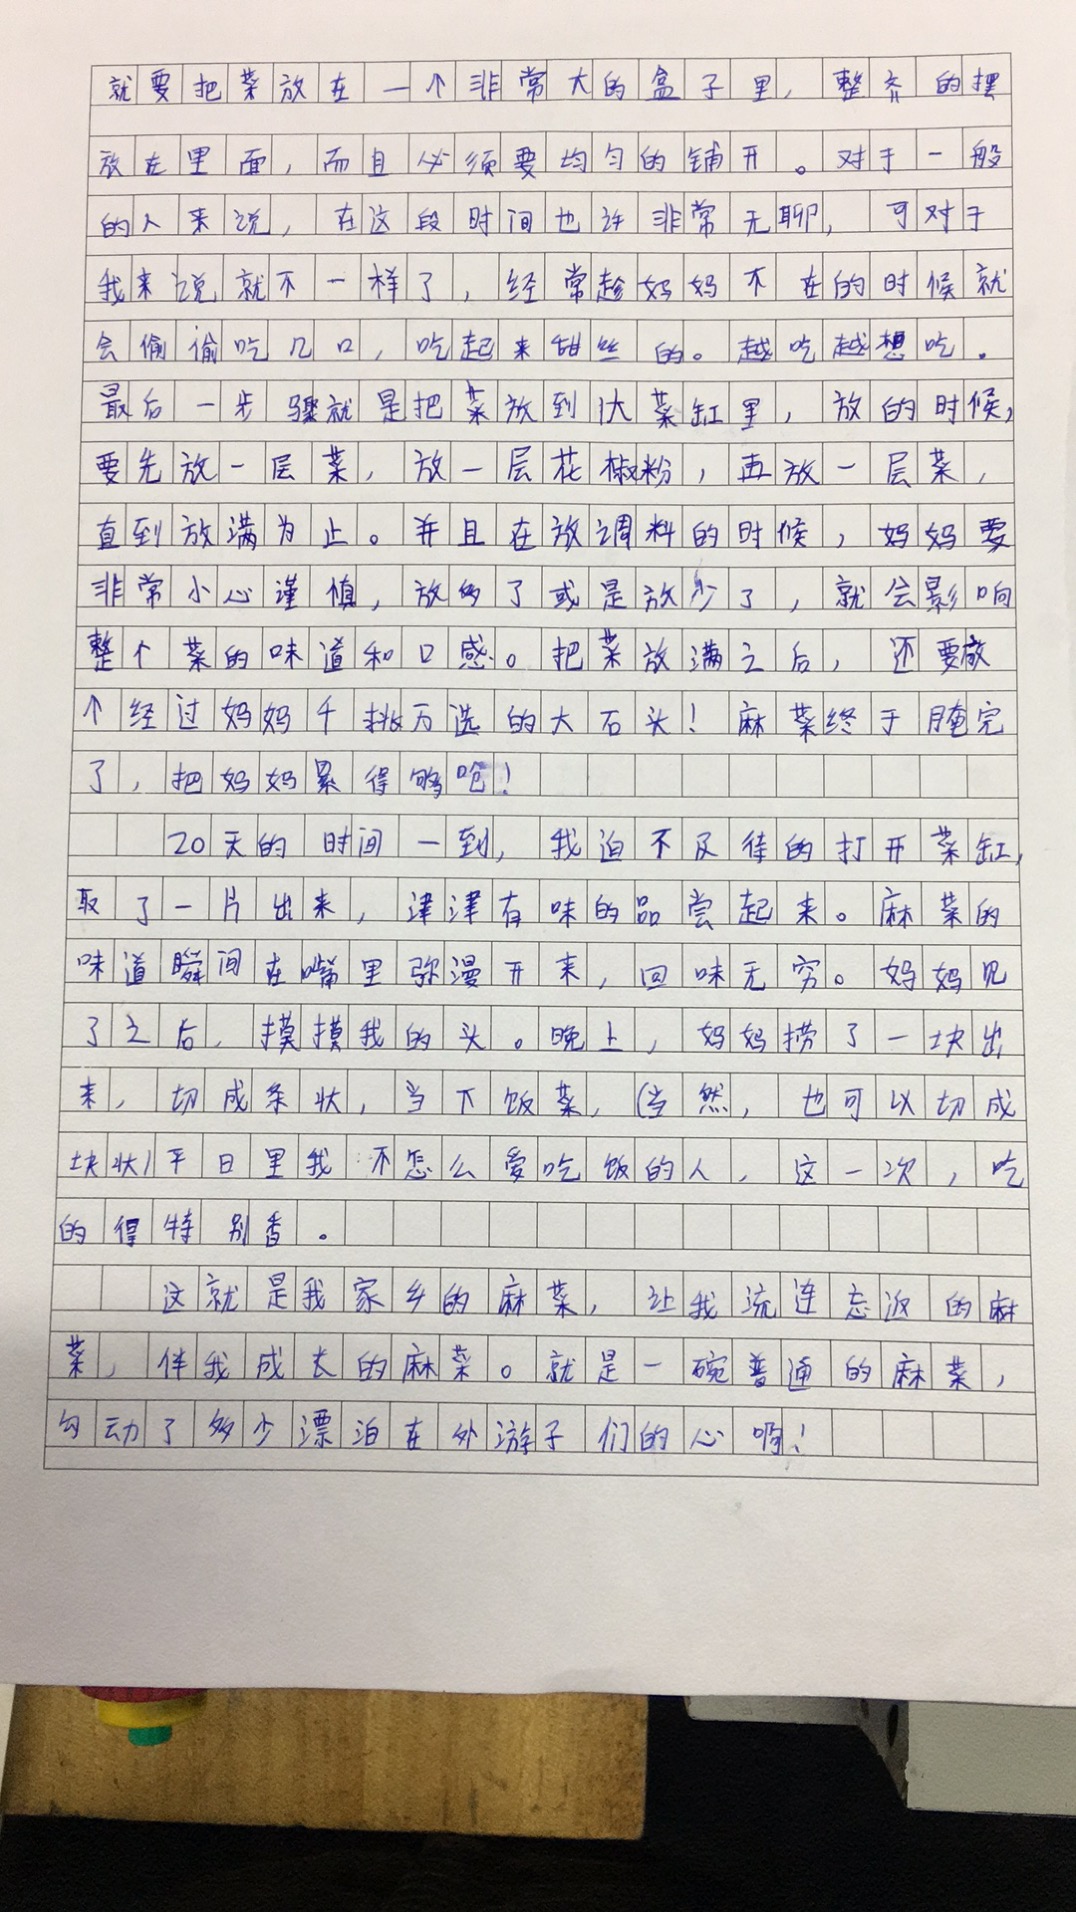 就要把菜放在一个非常大的盒子里，整齐的摆
放在里面，而且必须要均匀的铺开。对于一般
的人来说，在这段时间也许非常无聊，可对于
我来说就不一样了，经常趁妈妈不在的时候就
会偷偷吃几口，吃起来甜丝的。越吃越想吃.
最后一步骤就是把菜放到大菜缸里，放的时候，
要先放一层菜，放一层花椒粉，再放一层菜，
直到放满为止。并且在放调料的时候，妈妈要
非常小心谨慎，放多了或是放少了，就会影响
整个菜的味道和口感。把菜放满之后，还要放
个经过妈妈千挑万选的大石头！麻菜终于腌完
了，把妈妈累得够呛！
20天的时间一到，我迫不及待的打开菜缸，
取了一片出来，津津有味的品尝起来。麻菜的
味道瞬间在嘴里弥漫开来，回味无穷。妈妈见
了之后，摸摸我的头。晚上，妈妈捞了一块出
来，切成条状，当下饭菜，(当然，也可以切成
块状)平日里我不怎么爱吃饭的人，这一次，吃
的得特别香。
这就是我家乡的麻菜，让我流连忘返的麻
菜，伴我成长的麻菜。就是一碗普通的麻菜，
勾动了多少漂泊在外游子们的心啊！